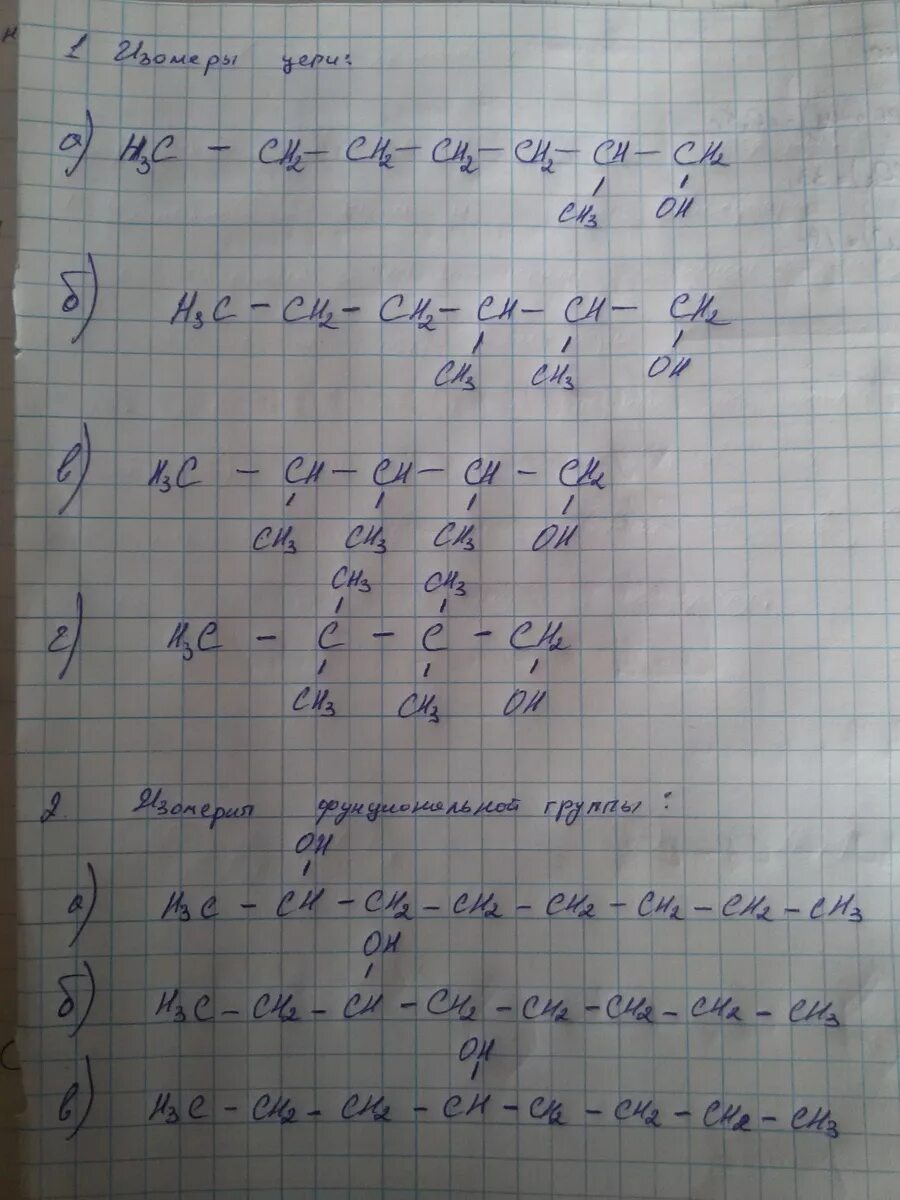 1 Изомеры цепи:
а) H₃C - CH₂ - CH₂ - CH₂ - CH₂ - CH - CH₂
CH₃ OH
б) H₃C - CH₂ - CH₂ - CH - CH - CH₂
CH₃ CH₃ OH
в) H₃C - CH - CH - CH - CH₂
CH₃ CH₃ CH₃ OH
CH₃ CH₃
г) H₃C - C - C - CH₂
CH₃ CH₃ OH
2. Изомерия фунциональной группы:
OH
а) H₃C - CH - CH₂ - CH₂ - CH₂ - CH₂ - CH₂ - CH₃
OH
б) H₃C - CH₂ - CH - CH₂ - CH₂ - CH₂ - CH₂ - CH₃
OH
в) H₃C - CH₂ - CH₂ - CH - CH₂ - CH₂ - CH₂ - CH₃